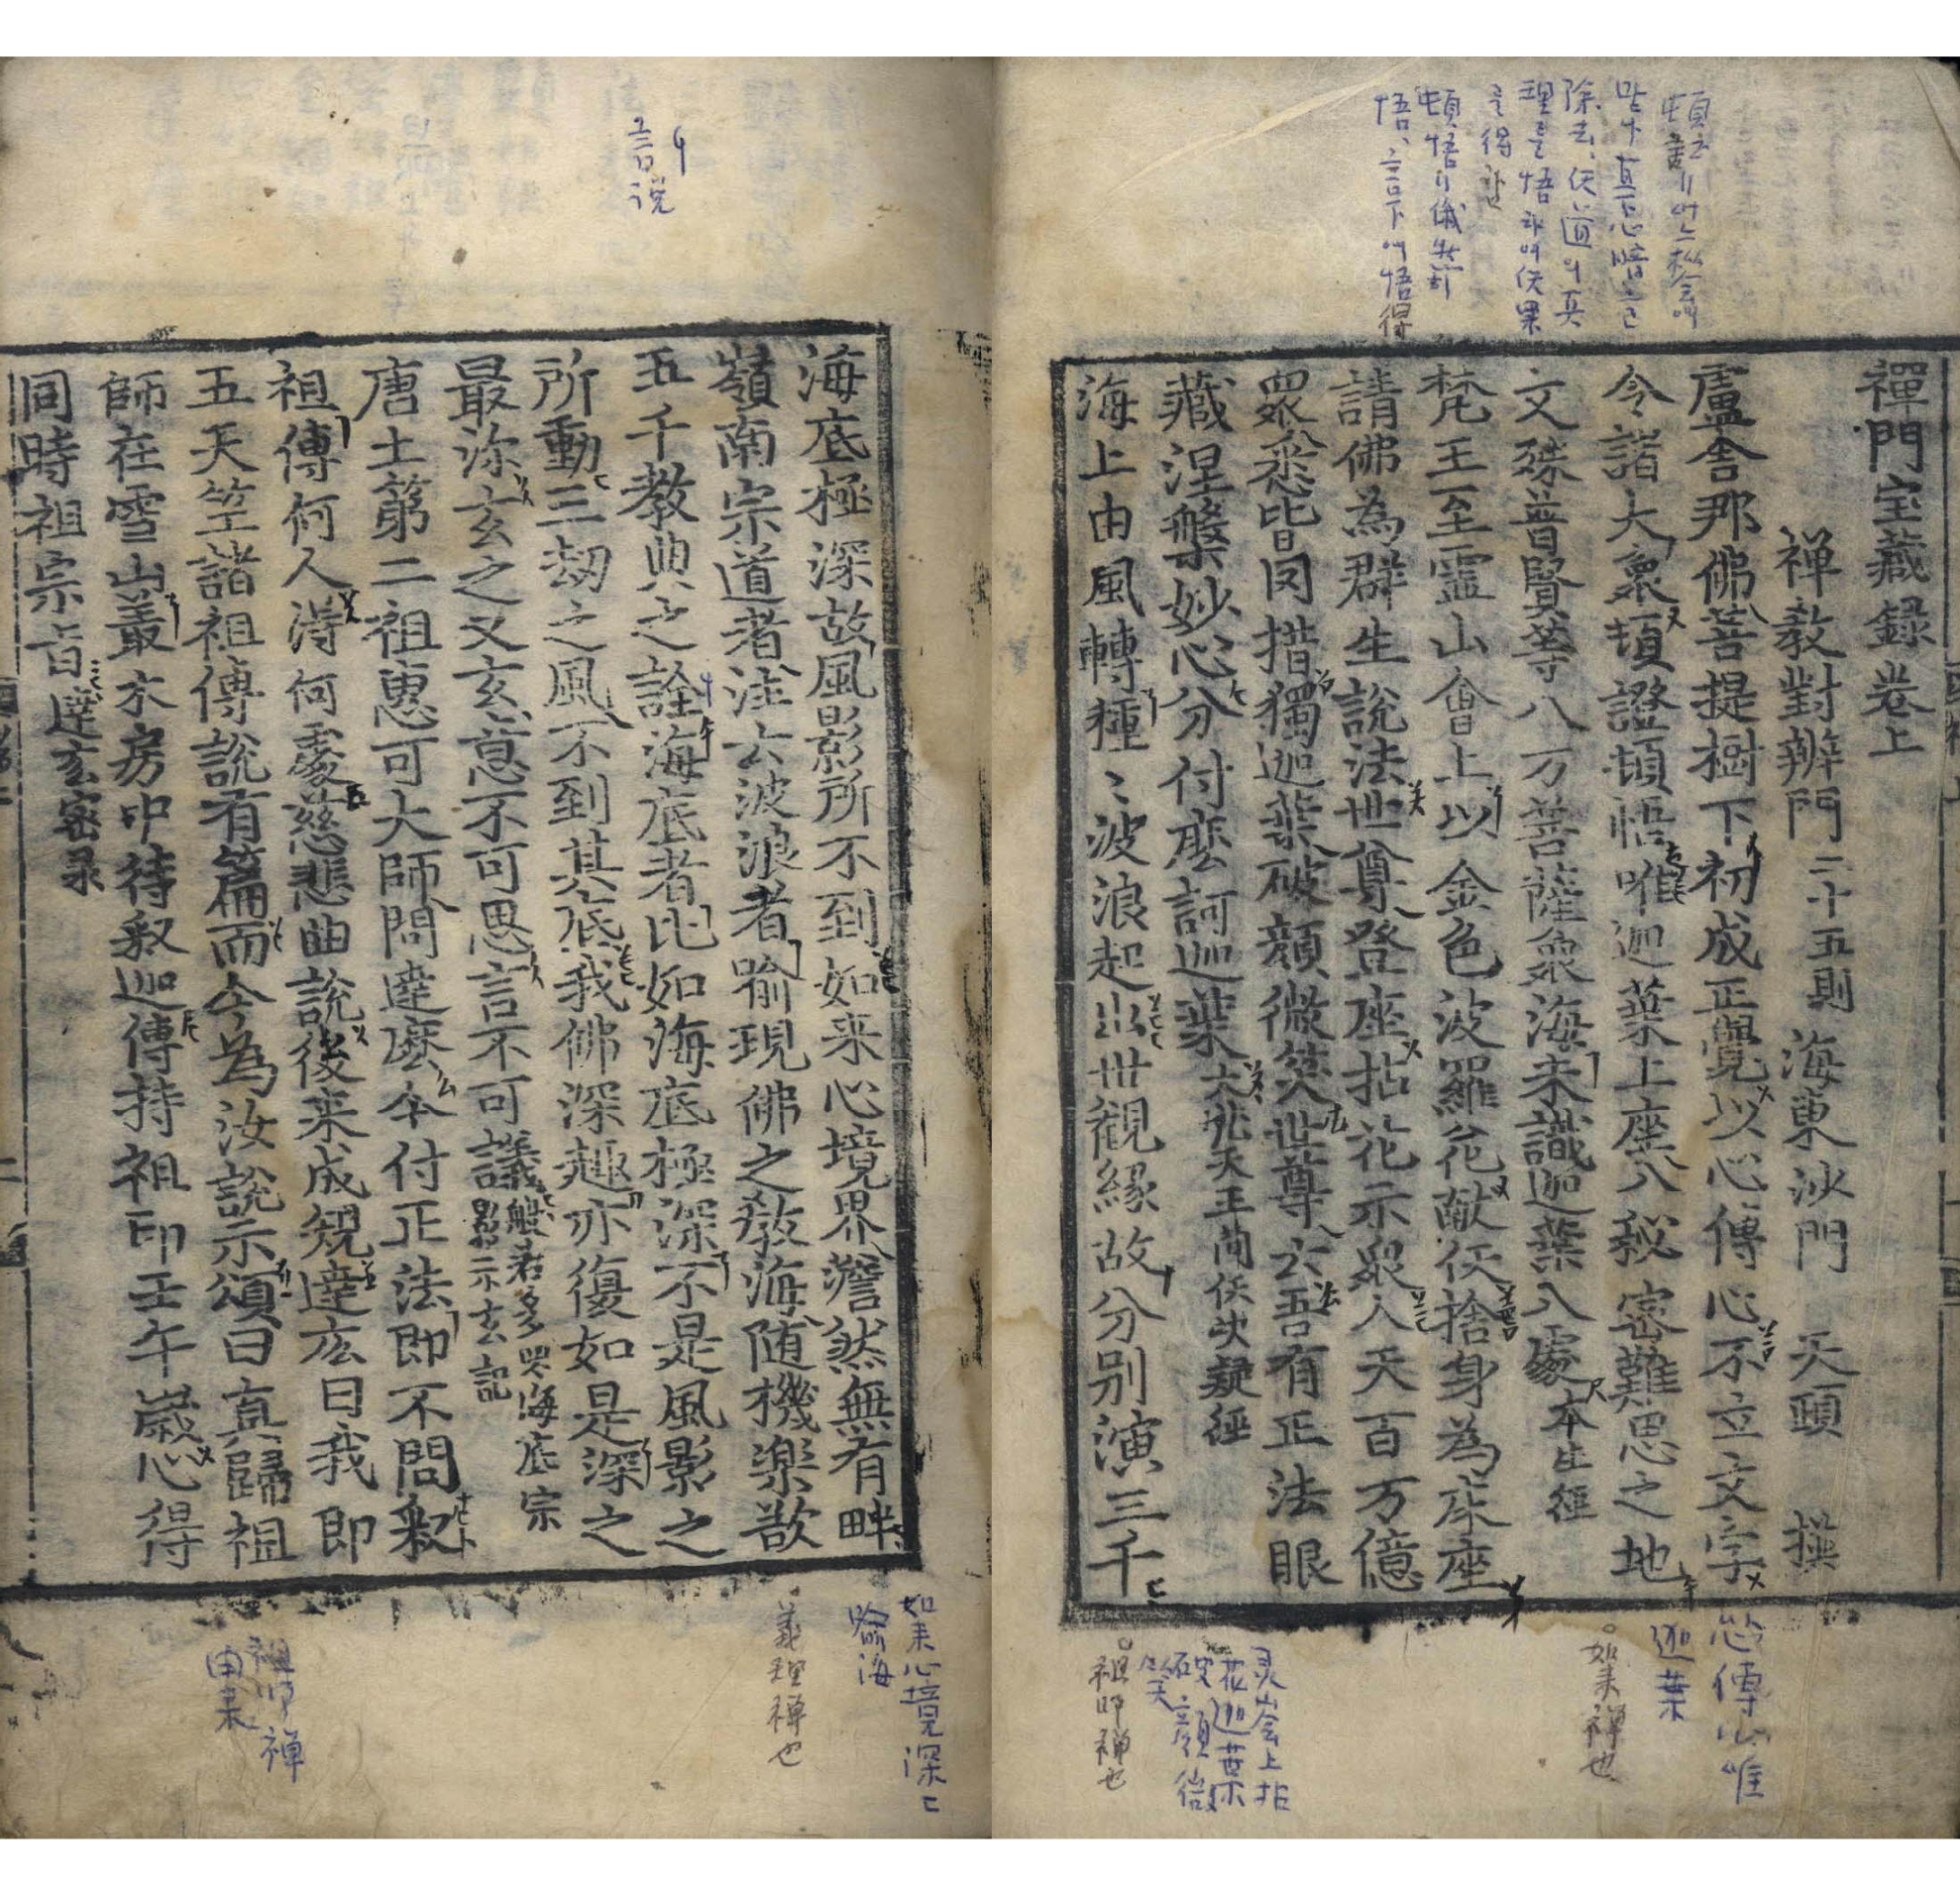 禪門宝藏録卷上
禅教對辨門二十五則 海東沙門 天頙 撰
盧舎那佛菩提樹下初成正覺以心傳心不立文字
令諸大衆頓證頓悟唯迦葉上座入秘密難思之地
文殊普賢等八万菩薩衆海未識迦葉入處本生経
梵王至霊山會上以金色波羅花献仸捨身為床座
請佛為群生說法世尊登座拈花示衆人天百万億
衆悉皆罔措獨迦葉破顔微笑世尊云吾有正法眼
藏涅槃妙心分付摩訶迦葉大梵天王問仸决疑経
海上由風轉種〻波浪起出世観緣故分別演三千
海底極深故風影所不到如来心境界澹然無有畔
嶺南宗道者注云波浪者喻現佛之教海随機楽欲
五千教典之詮海底者比如海底極深不是風影之
所動三刼之風不到其底我佛深趣亦復如是深之
最深玄之又玄意不可思言不可議般若多罗海底宗影示玄記
唐土第二祖惠可大師問達磨今付正法即不問釈
祖傳何人得何處慈悲曲說後来成䂓達磨曰我即
五天竺諸祖傳說有篇而今為汝說示頌曰真歸祖
師在雪山叢木房中待釈迦傳持祖印壬午歳心得
同時祖宗旨達玄密录
頓證
마ᄉ 真下心暗을
除去、仸道의 真
理를 悟하여 仸果
를 得함
頓悟 俄然히
悟、言下에 悟得
言說
心傳心唯
迦葉
如来禅也
灵山会上拈
花迦葉
破顔微
笑
祖師禅也
如来心境深
喻海
義理禅也
祖师禅
由来